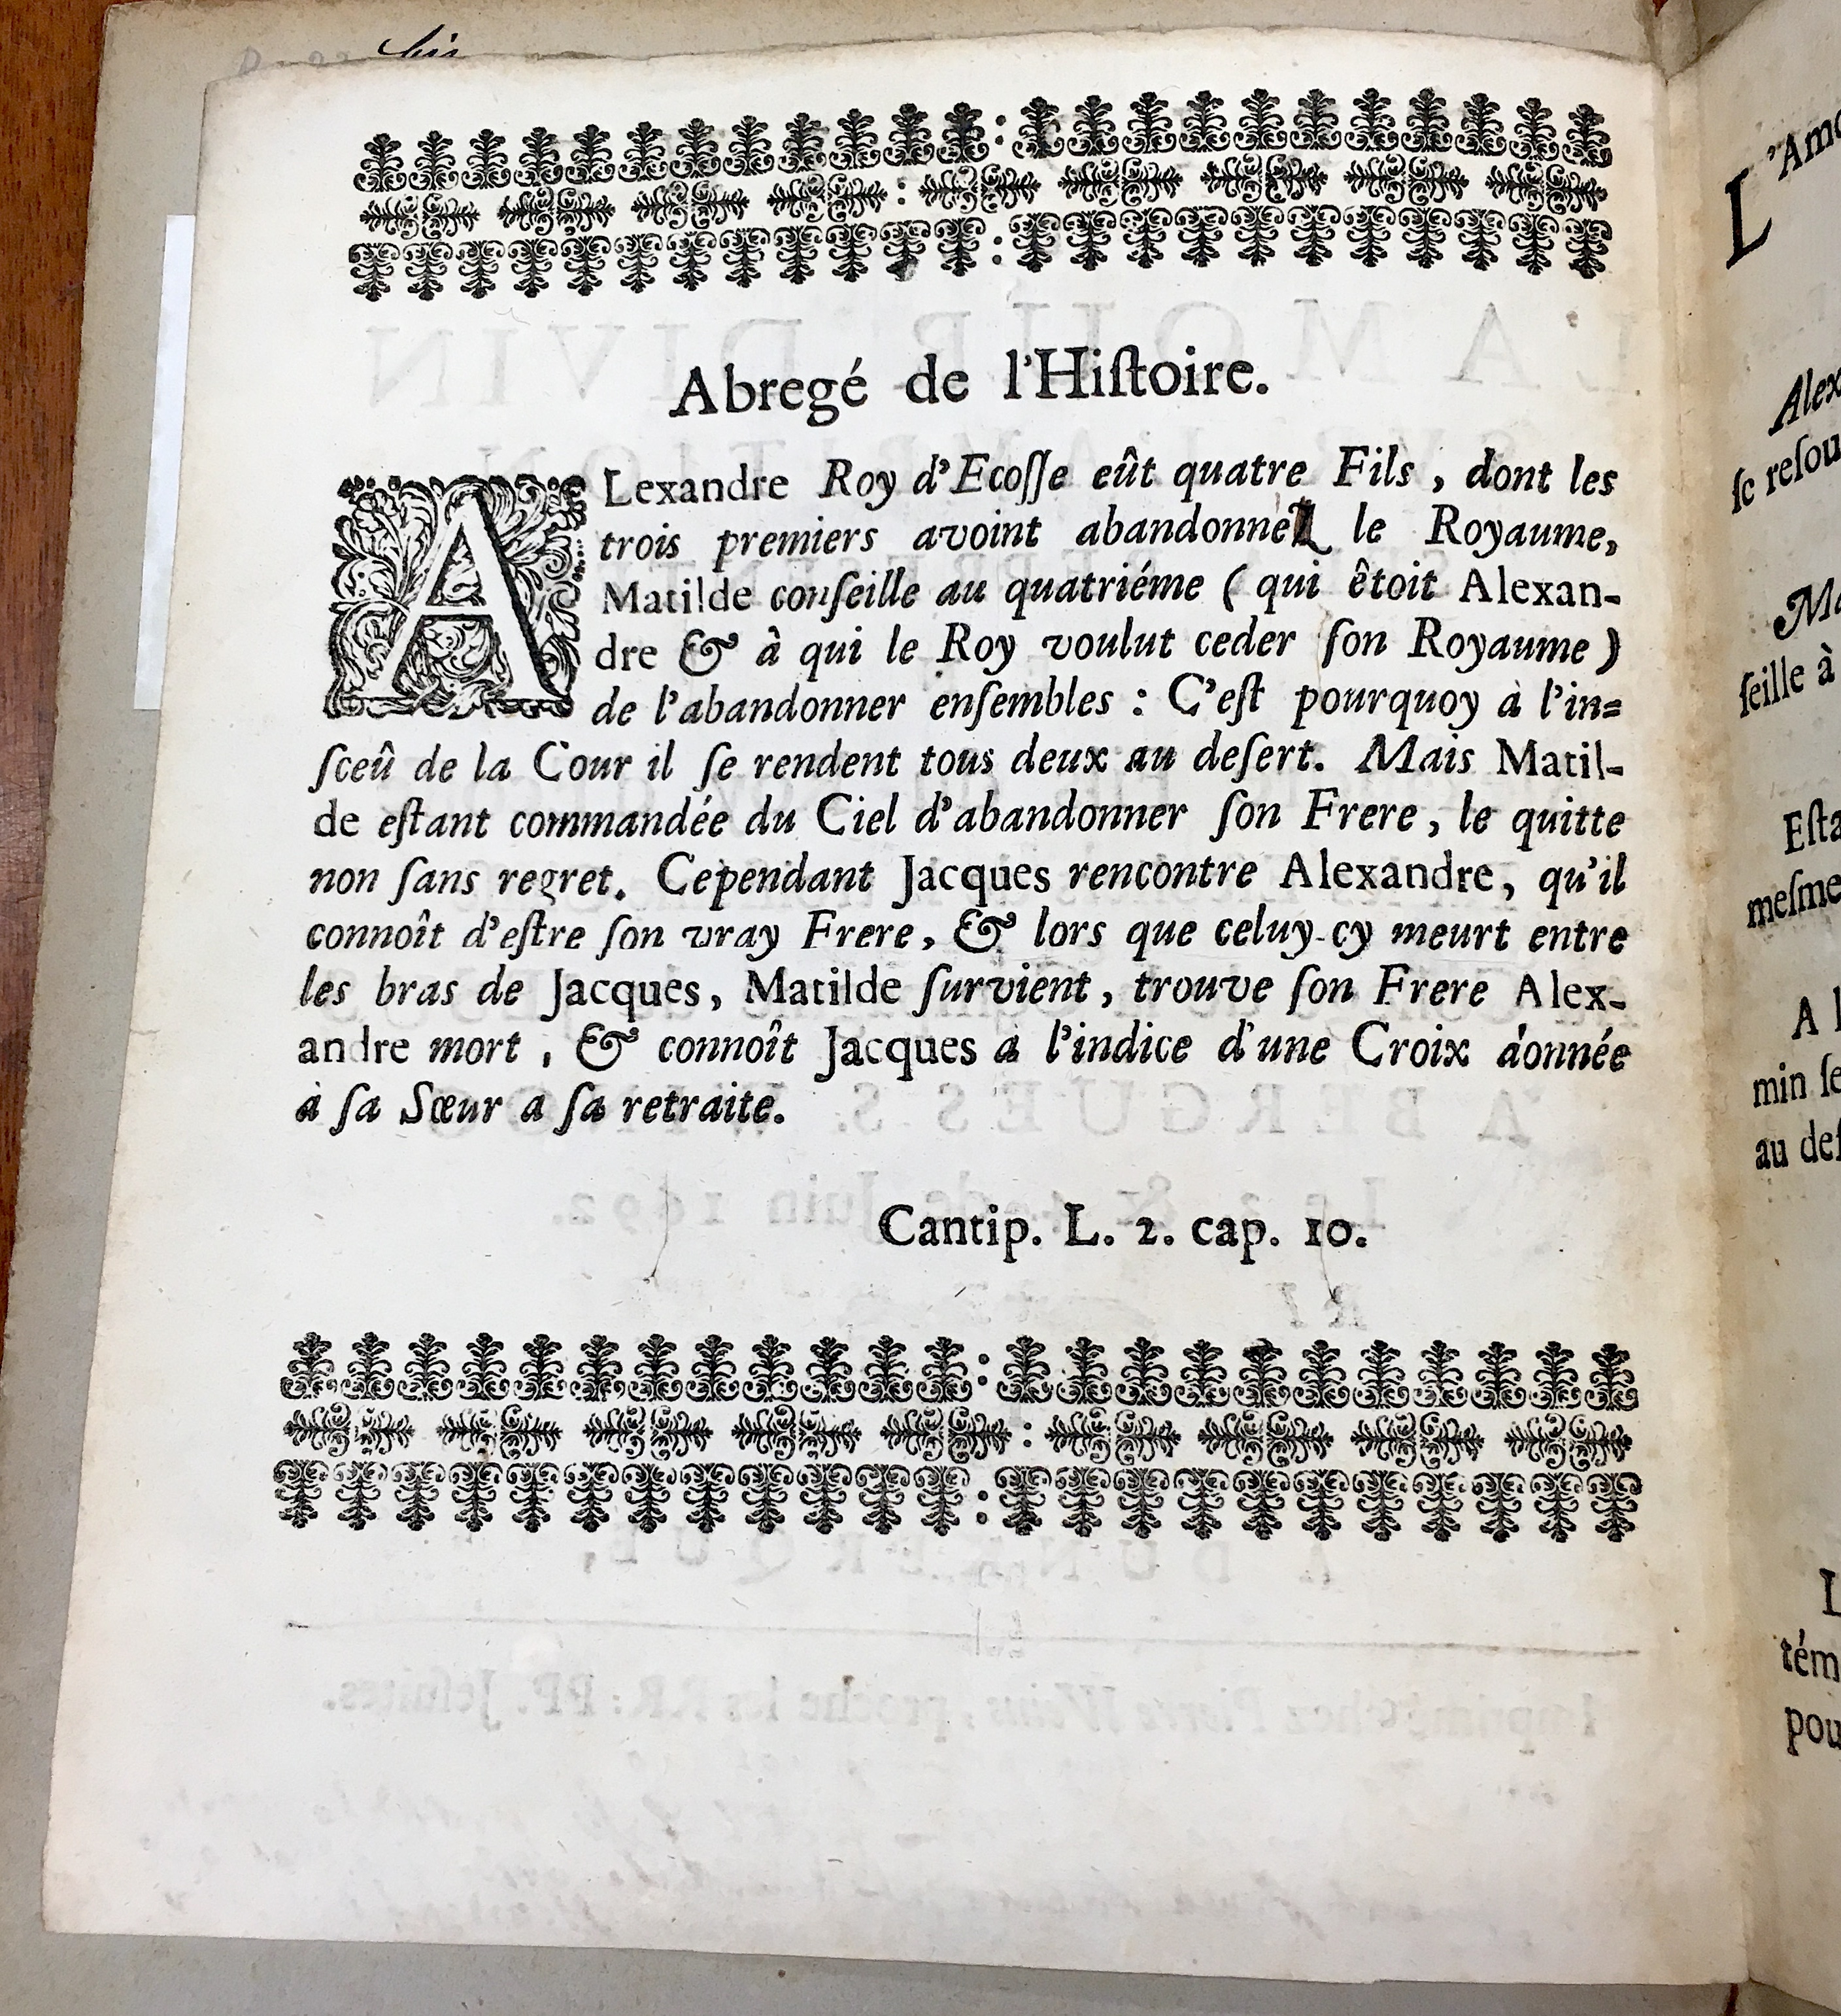 Abregé de l'Hiſtoire.
ALexandre Roy d'Ecoſſe eût quatre Fils, dont les
trois premiers avoint abandonnez le Royaume,
Matilde conſeille au quatriéme (qui êtoit Alexan-
dre & à qui le Roy voulut ceder ſon Royaume)
de l'abandonner enſembles : C'eſt pourquoy à l'in-
ſceû de la Cour il ſe rendent tous deux au deſert. Mais Matil-
de eſtant commandée du Ciel d'abandonner ſon Frere, le quitte
non ſans regret. Cependant Jacques rencontre Alexandre, qu'il
connoît d'eſtre ſon vray Frere, & lors que celuy-cy meurt entre
les bras de Jacques, Matilde ſurvient, trouve ſon Frere Alex-
andre mort, & connoît Jacques a l'indice d'une Croix donnée
à ſa Sœur a ſa retraite.
Cantip. L. 2. cap. 10.
L'Amo
Alex
ſe reſou
Ma
ſeille à
Eſta
meſme
A l
min ſe
au deſ
L
tém
pou